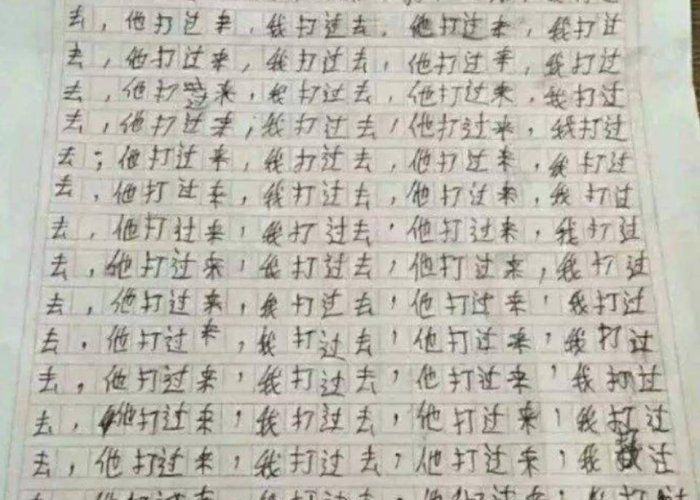 去，他打过来，我打过去，他打过来，我打过
去，他打过来，我打过去，他打过来，我打过
去，他打过来，我打过去，他打过来，我打过
去，他打过来，我打过去，他打过来，我打过
去，他打过来，我打过去，他打过来，我打过
去，他打过来，我打过去，他打过来，我打过
去，他打过来，我打过去，他打过来，我打过
去，他打过来，我打过去，他打过来，我打过
去，他打过来，我打过去，他打过来，我打过
去，他打过来，我打过去，他打过来，我打过
去，他打过来，我打过去，他打过来，我打过
去，他打过来，我打过去，他打过来，我打过
去，他打过来，我打过去，他打过来，我过